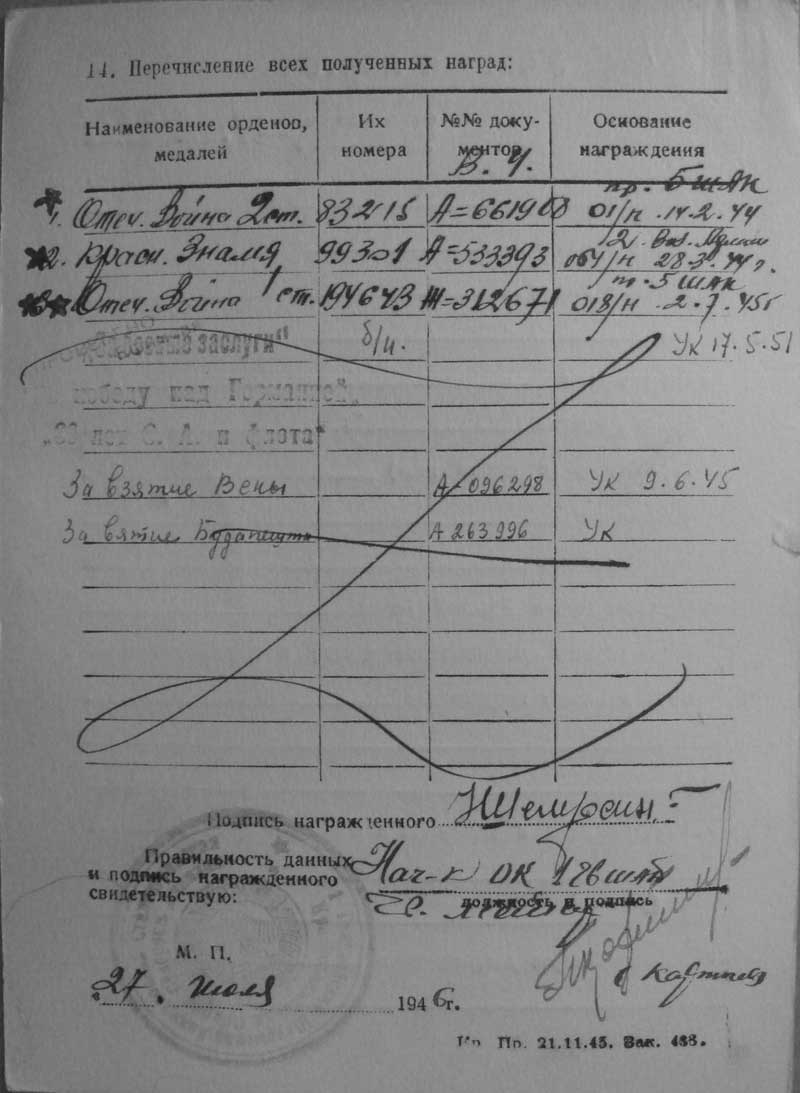 14. Перечисление всех полученных наград:
Наименование орденов, медалей
Их номера
№№ документов
Основание награждения
В. Ч.
пр. 5 шак
1. Отеч. Война 2 ст. 83215 А=661900 01/н .14.2.44
2. Красн. Знамя 99301 А=533393 064/н 28.3.44г.
5 шак
Отеч. Война 1 ст. 194643 312671 018/н .2.7.45г
"За боевые заслуги" б/н. Ук 17.5.51
победу над Германией"
„30 лет С. А. и флота"
За взятие Вены А-096298 Ук 9.6.45
За вятие Будапешта А 263996 Ук
Подпись награжденного
Правильность данных и подпись награжденного свидетельствую:
Нач-к ОК шад
должность и подпись
М. П.
27. июля 1946г.
Пр. 21.11.45. Зак. 488.